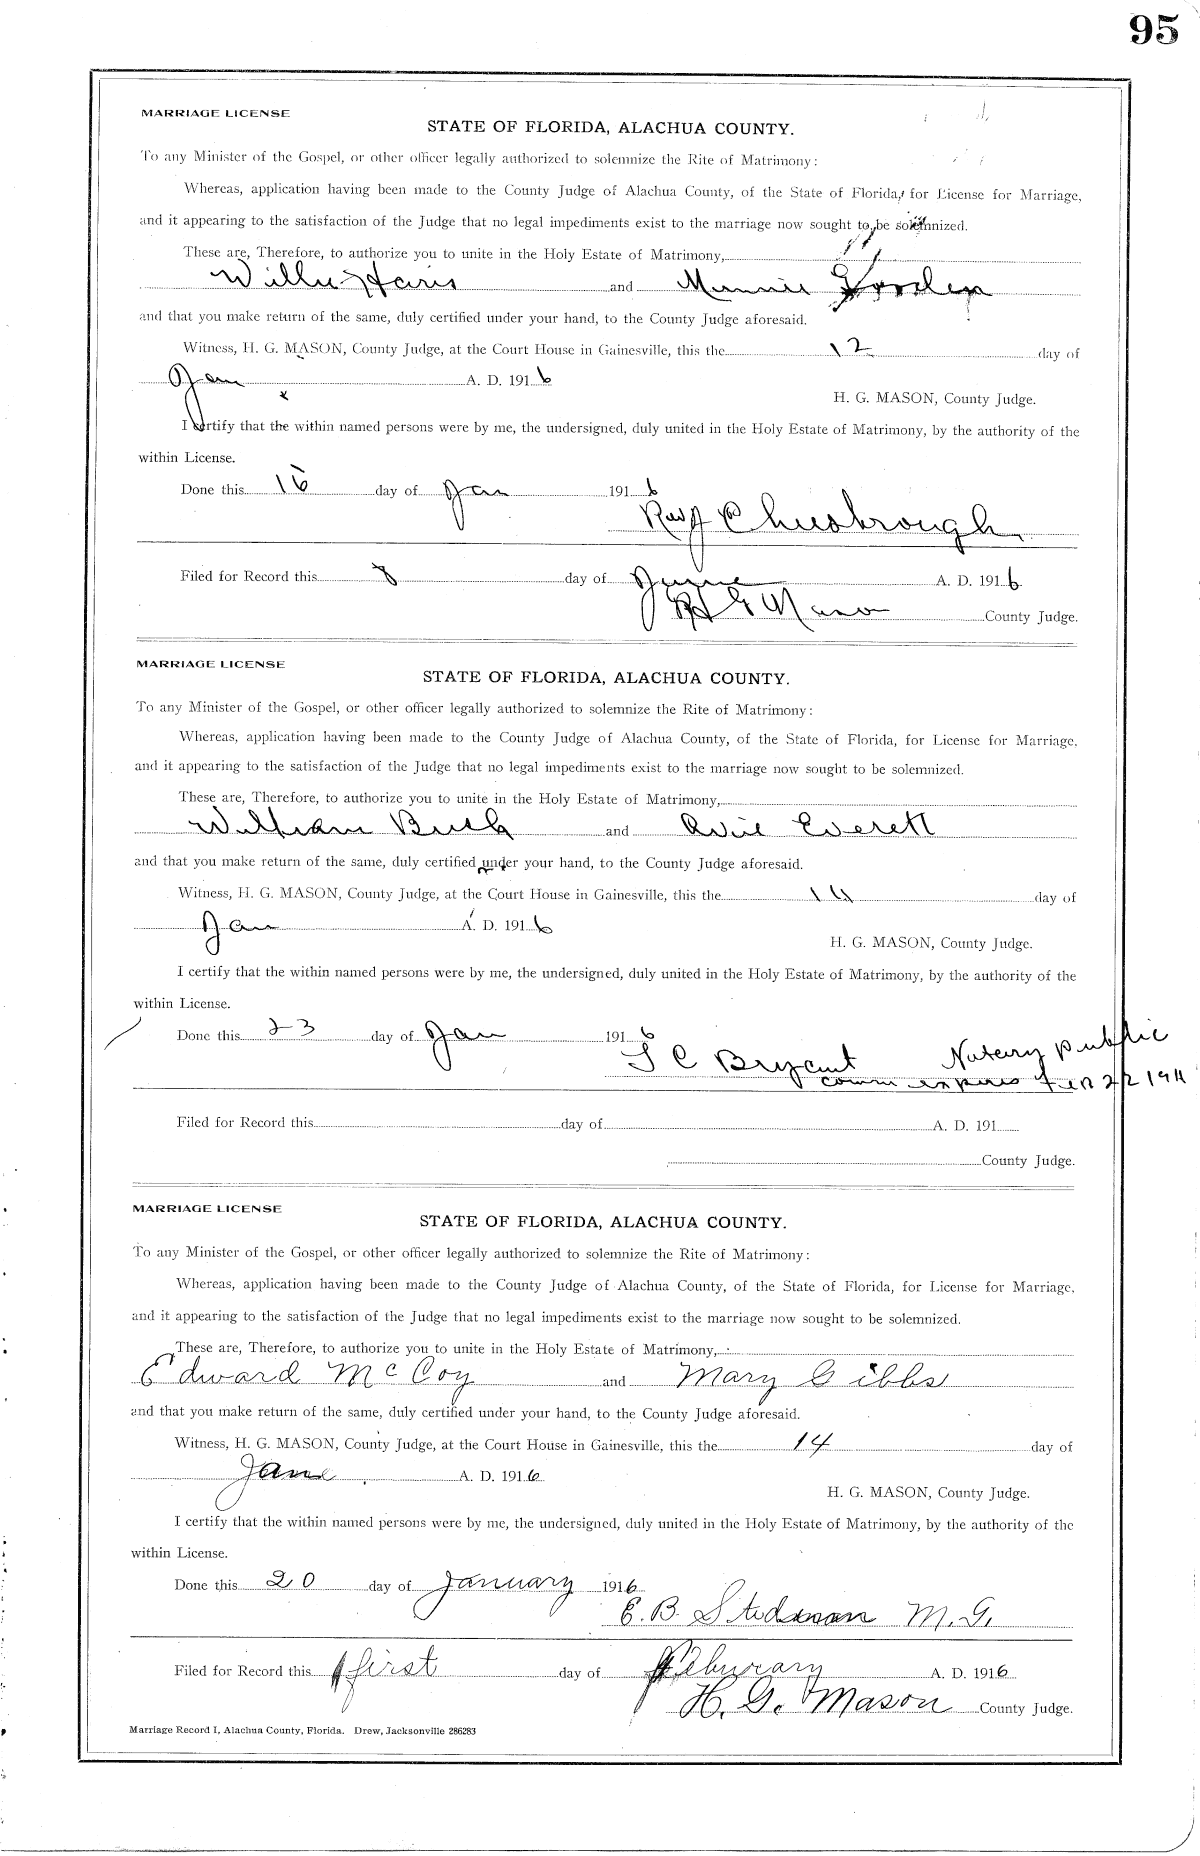 95
MARRIAGE LICENSE
STATE OF FLORIDA, ALACHUA COUNTY.
To any Minister of the Gospel, or other officer legally authorized to solemnize the Rite of Matrimony:
Whereas, application having been made to the County Judge of Alachua County, of the State of Florida, for License for Marriage,
and it appearing to the satisfaction of the Judge that no legal impediments exist to the marriage now sought to be solemnized.
These are, Therefore, to authorize you to unite in the Holy Estate of Matrimony,
Willie Haris and Minnie
and that you make return of the same, duly certified under your hand, to the County Judge aforesaid.
Witness, H. G. MASON, County Judge, at the Court House in Gainesville, this the 12 day of
Jan A. D. 1916
H. G. MASON, County Judge.
I certify that the within named persons were by me, the undersigned, duly united in the Holy Estate of Matrimony, by the authority of the
within License.
Done this day of Jan 1916
Rev
Filed for Record this 8 day of June A. D. 1916
H G Mason County Judge.
MARRIAGE LICENSE
STATE OF FLORIDA, ALACHUA COUNTY.
To any Minister of the Gospel, or other officer legally authorized to solemnize the Rite of Matrimony:
Whereas, application having been made to the County Judge of Alachua County, of the State of Florida, for License for Marriage,
and it appearing to the satisfaction of the Judge that no legal impediments exist to the marriage now sought to be solemnized.
These are, Therefore, to authorize you to unite in the Holy Estate of Matrimony,
William Bush and Everett
and that you make return of the same, duly certified under your hand, to the County Judge aforesaid.
Witness, H. G. MASON, County Judge, at the Court House in Gainesville, this the 14 day of
Jan A. D. 1916
H. G. MASON, County Judge.
I certify that the within named persons were by me, the undersigned, duly united in the Holy Estate of Matrimony, by the authority of the
within License.
Done this 23 day of Jan 1916
C Bryant Notary Public
comm expires Feb 22 191
Filed for Record this day of A. D. 191
County Judge.
MARRIAGE LICENSE
STATE OF FLORIDA, ALACHUA COUNTY.
To any Minister of the Gospel, or other officer legally authorized to solemnize the Rite of Matrimony:
Whereas, application having been made to the County Judge of Alachua County, of the State of Florida, for License for Marriage,
and it appearing to the satisfaction of the Judge that no legal impediments exist to the marriage now sought to be solemnized.
These are, Therefore, to authorize you to unite in the Holy Estate of Matrimony,
Edward McCoy and Mary Gibbs
and that you make return of the same, duly certified under your hand, to the County Judge aforesaid.
Witness, H. G. MASON, County Judge, at the Court House in Gainesville, this the 14 day of
A. D. 1916
H. G. MASON, County Judge.
I certify that the within named persons were by me, the undersigned, duly united in the Holy Estate of Matrimony, by the authority of the
within License.
Done this 20 day of January 1916
E. B. Stedman M. G.
Filed for Record this first day of Feburary A. D. 1916
H. G. Mason County Judge.
Marriage Record I, Alachua County, Florida. Drew, Jacksonville 286283